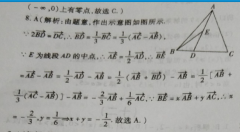 (-∞,0)上有零点,故选C.)
8.A(解析:由题意,作出示意图如图所示.
∵2BD=DC,∴BD=1/3BC=1/3(AC-AB),
∵E为线段AD的中点,∴AE=1/2AD,∴BE
=AE-AB=1/2AD-AB=1/2(AB+BD)-AB=1/2[AB+
1/3(AC-AB)]-AB=-2/3AB+1/6AC,∵BE=xAB+yAC,∴x
=-2/3,y=1/6⇒x+y=-1/2.故选A.)
A
E
B
D
C